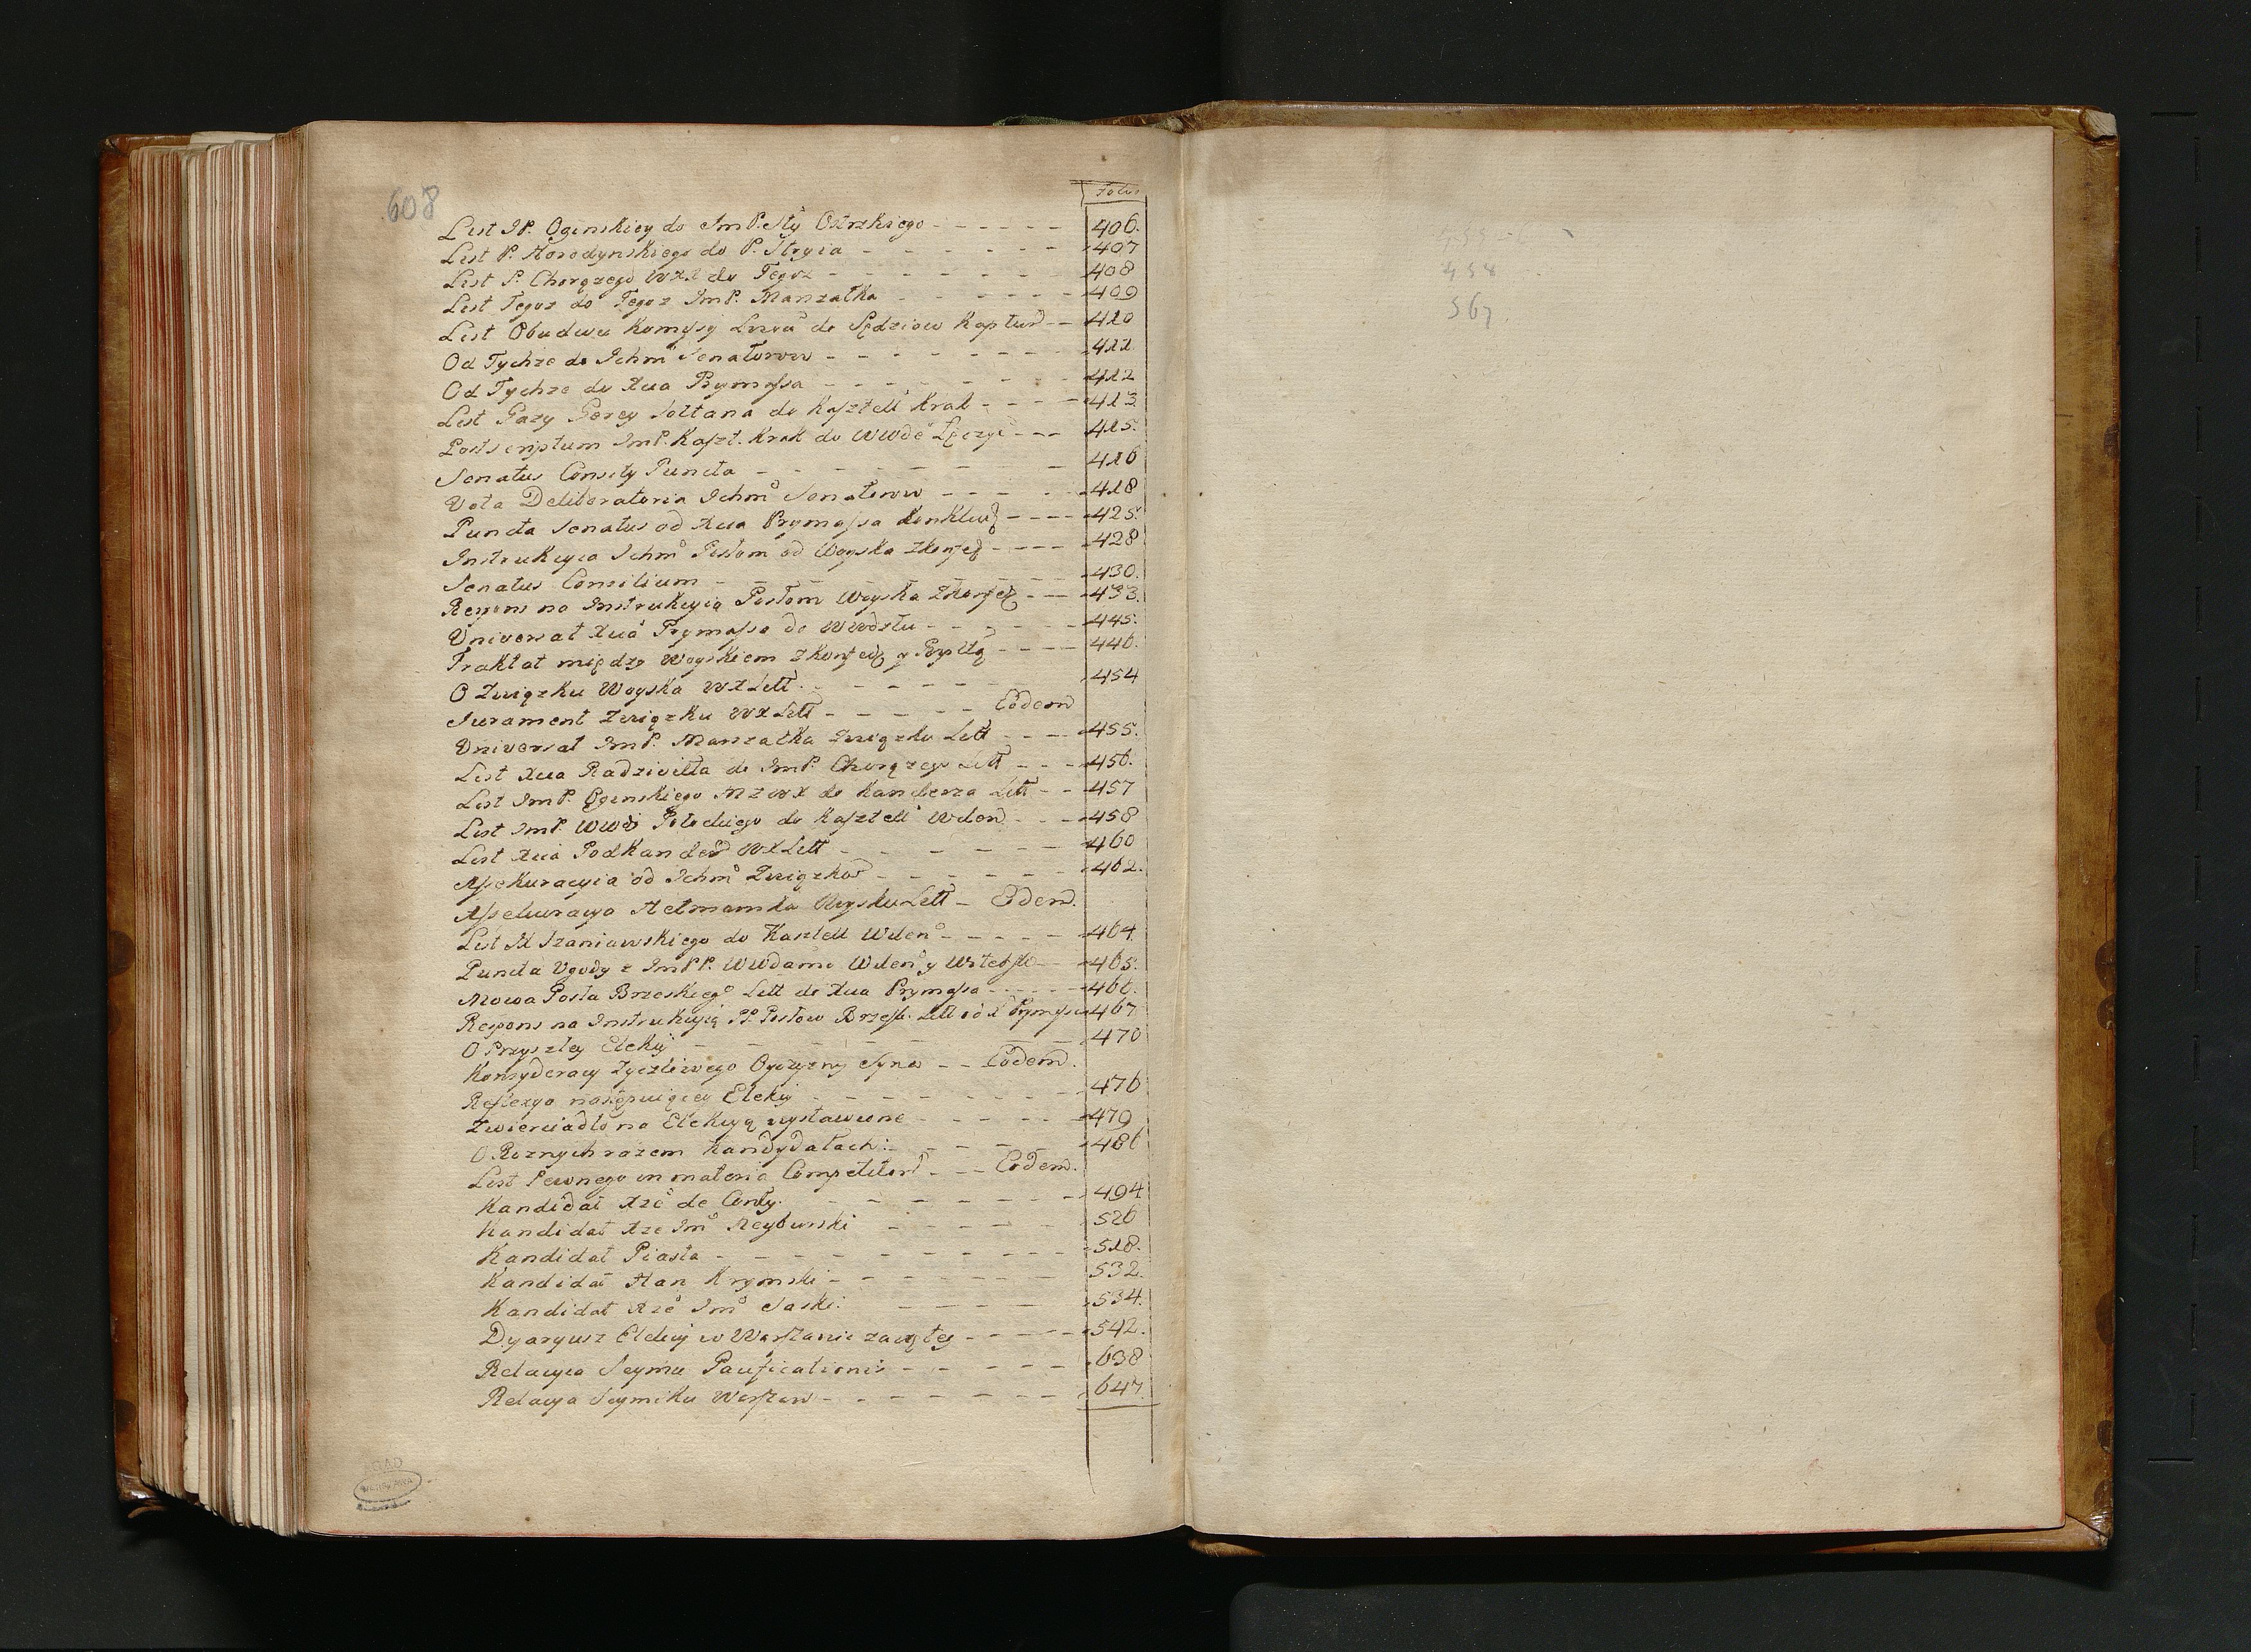 608
Folio
List JP. Oginskiey do JmP. Stÿ Ostrskiego - - - - - - 406.
List P. Horodynskiego do P. Stryia - - - - - - 407
List P. Chorązego WXL do Tegoz - - - - - - 408
List Tegoz do Tegoz JmP. Marszałka - - - - - - 409
List Obudwu Komysÿ do Sędziow Kaptur - - 410
Od Tychze do Jchm Senatorow - - - - - - 411
Od Tychze do Xcia Prymassa - - - - - - 412
List Gazy Gerey Sołtana do Kasztell Krak - - - - 413
Postscriptum JmP. Kaszt. Krak do WWdc Lęczyc - - - 415.
Senatus Consily Puncta - - - - - - 416
Vota Deliberatoria Jchm Senatorow - - - - - 418
Puncta Senatus od Xcia Prymassa Konkluz - - - - 425.
Instrukcyia Jchm Posłom od Woyska Zkonfed - - - - 428
Senatus Consilium - - - - - - 430.
Respons na Instrukcyią Posłom Woyska Zkonfed - - - 433.
Uniwersał Xcia Prymassa do WWdztw - - - - - 445.
Traktat między Woyskiem Zkonfed y Rzpltą - - - - 446.
O Związku Woyska WXLitt. - - - - - - 454
Jurament Związku WXLitt - - - - - Eodem
Uniwersał JmP. Marszałka Związku Litt - - - 455.
List Xcia Radziwiłła do JmP. Chorązego Litt - - - 456.
List JmP. Oginskiego do Kanclerza Litt - - 457
List JmP. WWdy Połockiego do Kasztell Wilen - - - 458
List Xcia Podkancler WXLitt - - - - - - 460
Assekuracyia od Jchm Związkow - - - - - - 462.
Assekuracya Hetmanska Woysku Litt - Eodem.
List X Szaniawskiego do Kasztell Wilen - - - - - 464.
Puncta Ugody z JmPP. WWdami Wilen y Witebsk - - 465.
Mowa Posła Brzeskiego Litt do Xcia Prymassa - - - - - 466.
Respons na Instrukcyią PP. Posłow Brzesk. Litt od X Prymassa 467
O Przyszłey Elekcÿ - - - - - - 470
Konsyderacy Zyczliwego Oyczyzny Syna - - Eodem.
Reflexya następuiącey Elekcÿ - - - - - - 476
Zwierciadło na Elekcyą wystawione - - - - - - 479
O Roznych razem Kandydatach: - - - - - 486
List Pewnego in materia Competitor - - - Eodem.
Kandidat Xzc de Conty. - - - - - - 494
Kandidat Xze Jm Neyburski - - - - - 526
Kandidat Piasta - - - - - - 518.
Kandidat Han Krymski - - - - - - 532.
Kandidat Xzc Jm Saski. - - - - - 534.
Dyaryusz Elekcÿ w Warszawie zaczętey - - - - - 542.
Relacyia Seymu Pacificationis - - - - - - 638
Relacya Seymiku Warszaw - - - - - - 647.
AGAD
WARSZAWA
458
567.